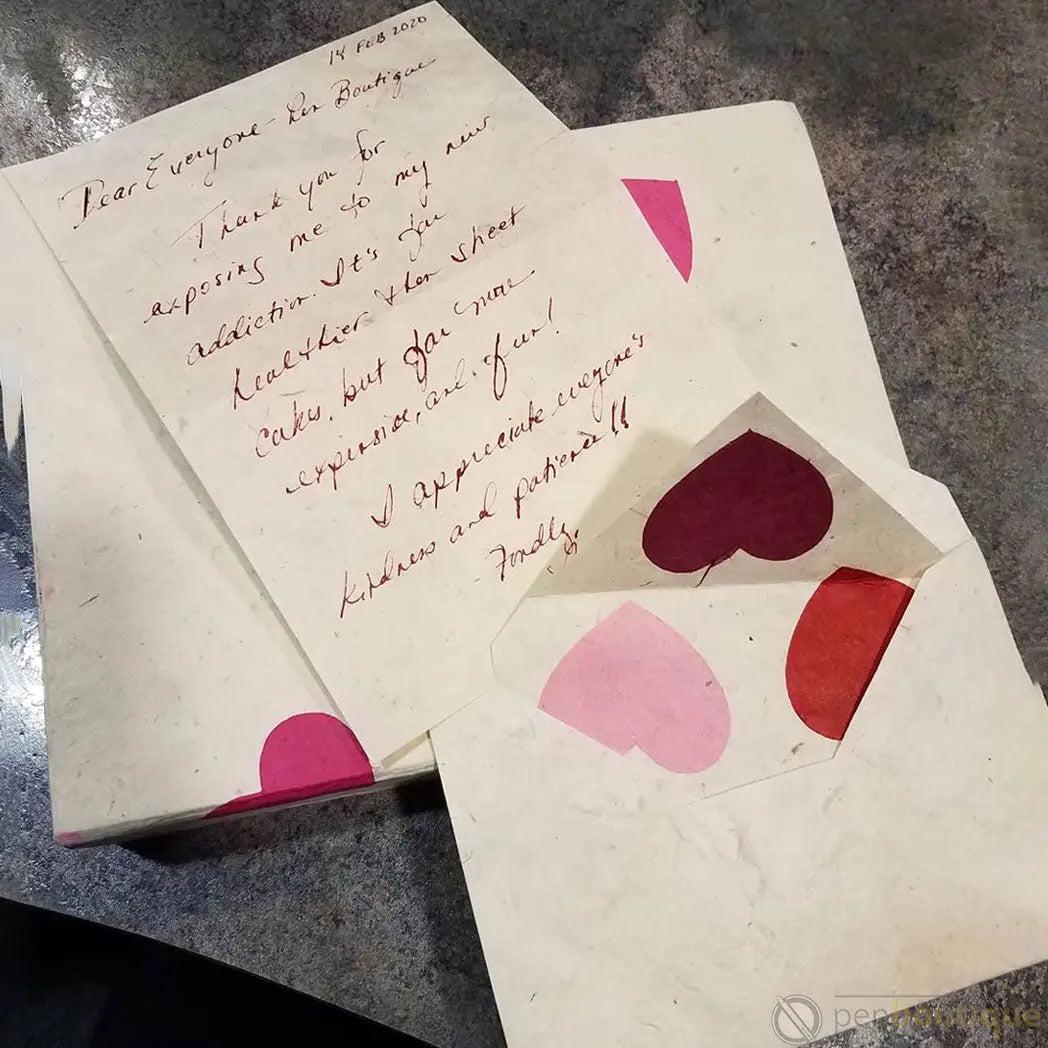 14 FEB 2020
Dear Everyone - Pen Boutique
Thank you for
exposing me to my new
addiction. It's far
healthier then sheet
cakes, but far more
expensive, and fun!
I appreciate everyone's
kindness and patience!!
- Fondly,
penboutique